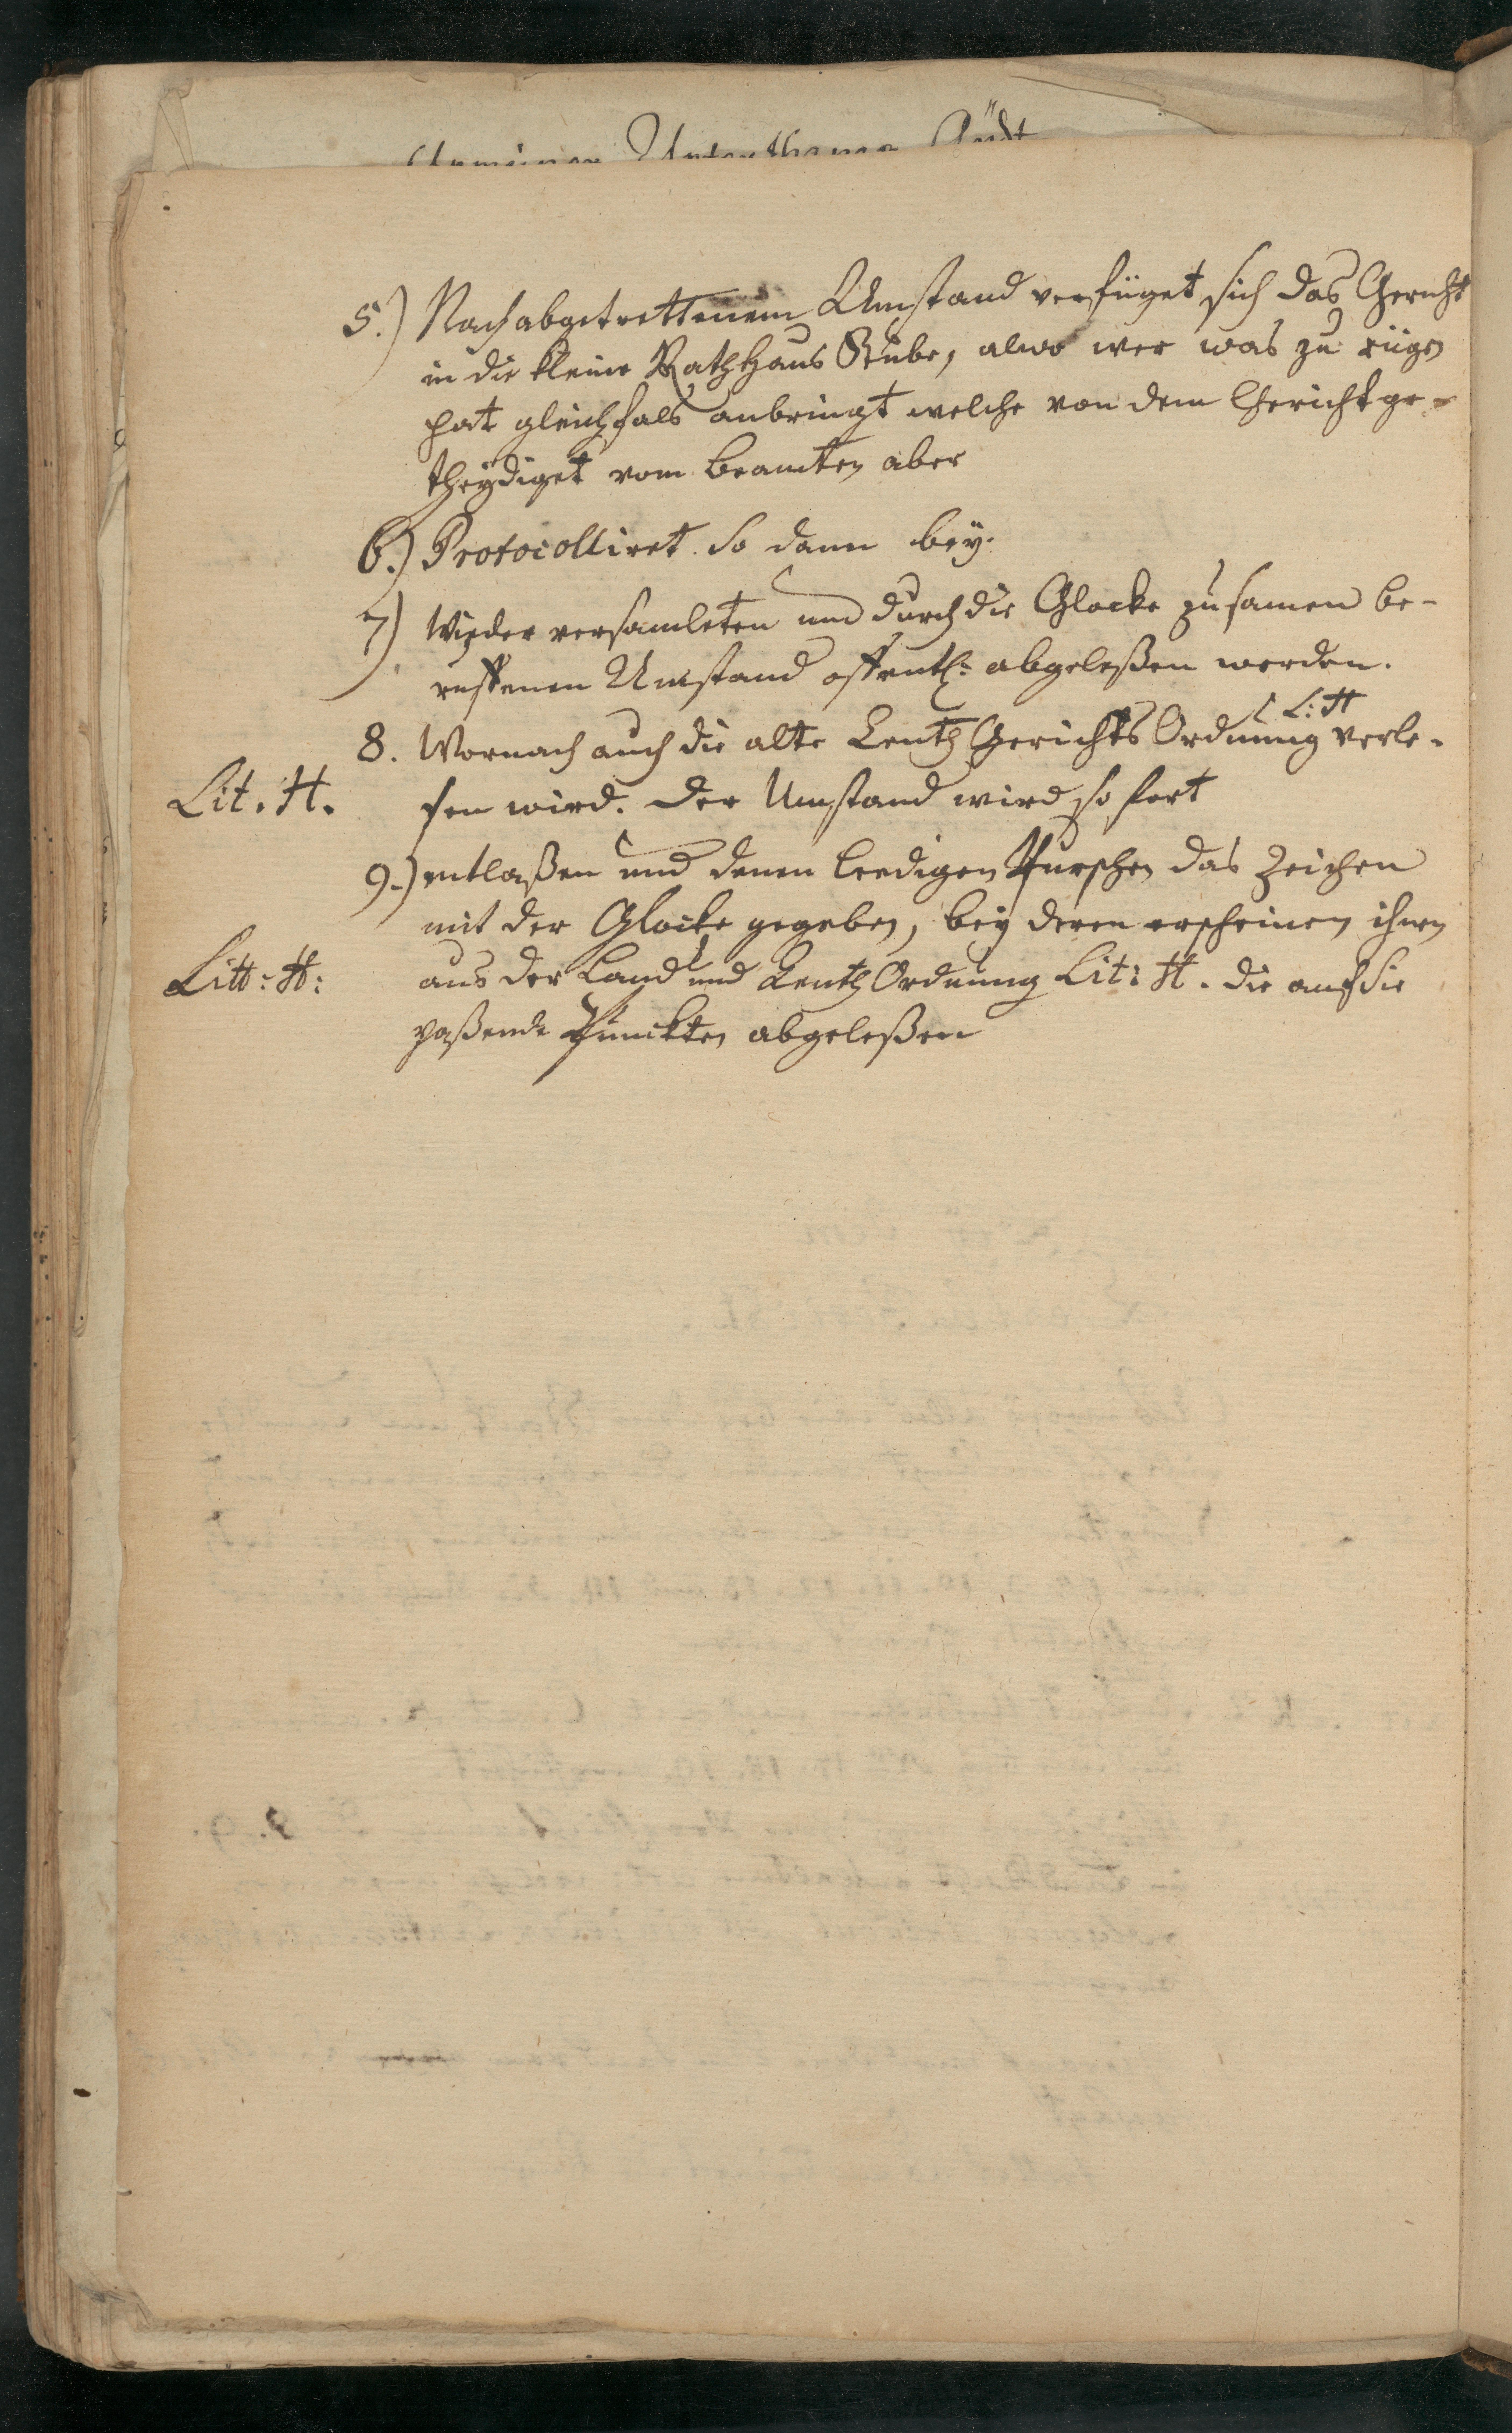 5.) Nach abgetrettenem Umstand verfüget sich das Gericht
in die kleine RathHaus Stube, alwo wer was zu rügen
hat gleichfals anbringt welche von dem Gericht ge-
theydiget vom Beamten aber
6.) Protocolliret. So dann bey.
7) Wieder versamleten und durch die Glocke zusamen be-
ruffenen Umstand offentl: abgeleßen werden.
L: H
8. Wornach auch die alte Centh Gerichts Ordnung verle-
Lit. H. sen wird. Der Umstand wird so fort
9.) entlaßen und denen leedigen Purschen das Zeichen
mit der Glocke gegeben, bey deren erscheinen ihnen
Litt: H: aus der Land und Centh Ordnung Lit: H. die auf sie
paßende Punckten abgeleßen